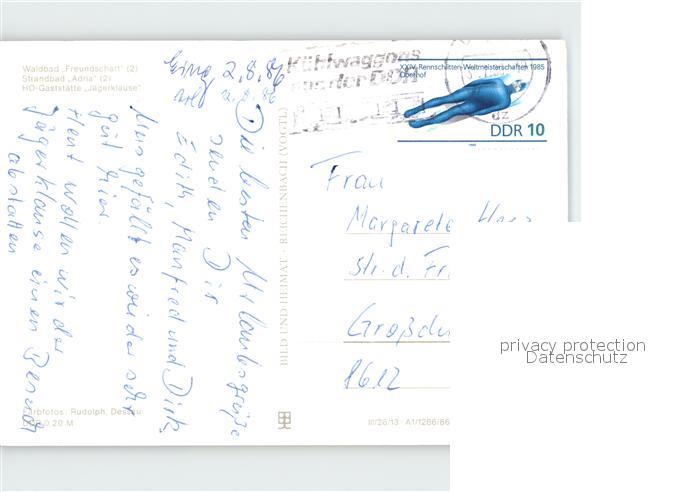 Waldbad „Freundschaft" (2)
Strandbad „Adria" (2)
HO-Gaststätte „Jägerklause"
2.8.86
Die besten Urlaubsgrüße
senden Dir
Edith, Manfred und Dirk
Uns gefällt es wieder sehr
gut hier.
Heut wollen wir der
Jägerklause einen Besuch
abstatten
Farbfotos: Rudolph, Dessau
0,20 M
BILD UND HEIMAT REICHENBACH (VOGTL)
III/26/13 A1/1286/86
Kühlwaggons
aus der DDR
XXIV. Rennschlitten-Weltmeisterschaften 1985
Oberhof
DDR 10
Frau
Margarete
Str. d.
8612
privacy protection
Datenschutz